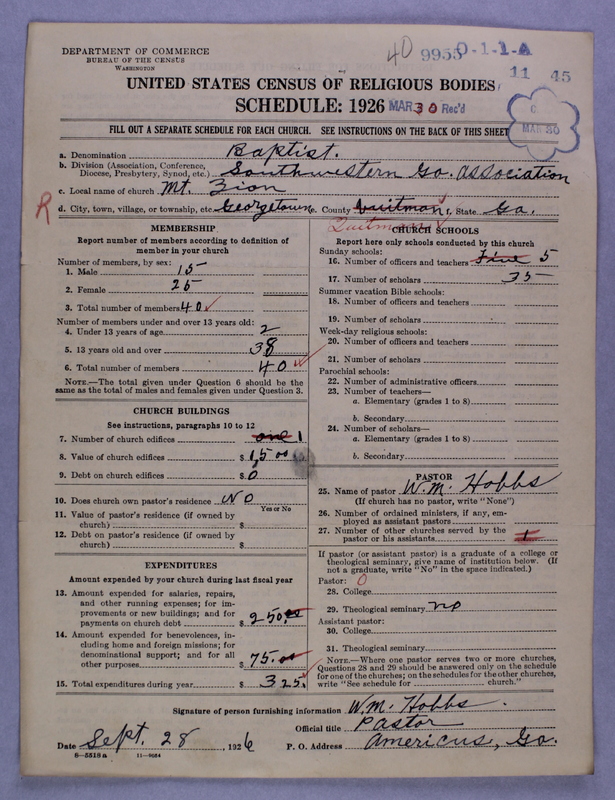 DEPARTMENT OF COMMERCE
BUREAU OF THE CENSUS
WASHINGTON
40 9955 0-1-1-A
11 45
UNITED STATES CENSUS OF RELIGIOUS BODIES
SCHEDULE: 1926 MAR 30 Rec'd
C
MAR 30
FILL OUT A SEPARATE SCHEDULE FOR EACH CHURCH. SEE INSTRUCTIONS ON THE BACK OF THIS SHEET
a. Denomination Baptist.
b. Division (Association, Conference, Diocese, Presbytery, Synod, etc.) Southwestern Ga. association
c. Local name of church Mt. Zion
R d. City, town, village, or township, etc. Georgetown e. County Quitman f. State Ga.
Quitman
MEMBERSHIP
Report number of members according to definition of
member in your church
Number of members, by sex:
1. Male 15
2. Female 25
3. Total number of members 40
Number of members under and over 13 years old:
4. Under 13 years of age 2
5. 13 years old and over 38
6. Total number of members 40
NOTE.—The total given under Question 6 should be the
same as the total of males and females given under Question 3.
CHURCH BUILDINGS
See instructions, paragraphs 10 to 12
7. Number of church edifices one 1
8. Value of church edifices $ 1,500
9. Debt on church edifices $ 0
10. Does church own pastor's residence NO
Yes or No
11. Value of pastor's residence (if owned by
church) $
12. Debt on pastor's residence (if owned by
church) $
EXPENDITURES
Amount expended by your church during last fiscal year
13. Amount expended for salaries, repairs,
and other running expenses; for im-
provements or new buildings; and for
payments on church debt $ 250.00
14. Amount expended for benevolences, in-
cluding home and foreign missions; for
denominational support; and for all
other purposes $ 75.00
15. Total expenditures during year $ 325.
CHURCH SCHOOLS
Report here only schools conducted by this church
Sunday schools:
16. Number of officers and teachers Five 5
17. Number of scholars 35
Summer vacation Bible schools:
18. Number of officers and teachers
19. Number of scholars
Week-day religious schools:
20. Number of officers and teachers
21. Number of scholars
Parochial schools:
22. Number of administrative officers
23. Number of teachers—
a. Elementary (grades 1 to 8)
b. Secondary
24. Number of scholars—
a. Elementary (grades 1 to 8)
b. Secondary
PASTOR
25. Name of pastor W.M. Hobbs
(If church has no pastor, write "None")
26. Number of ordained ministers, if any, em-
ployed as assistant pastors
27. Number of other churches served by the
pastor or his assistants 1
If pastor (or assistant pastor) is a graduate of a college or
theological seminary, give name of institution below. (If
not a graduate, write "No" in the space indicated.)
Pastor: 0
28. College
29. Theological seminary no
Assistant pastor:
30. College
31. Theological seminary
NOTE.—Where one pastor serves two or more churches,
Questions 28 and 29 should be answered only on the schedule
for one of the churches; on the schedules for the other churches,
write "See schedule for church."
Signature of person furnishing information W.M. Hobbs.
Official title Pastor
Date Sept. 28, 1926 P. O. Address Americus, Ga.
8-5518a 11-9684